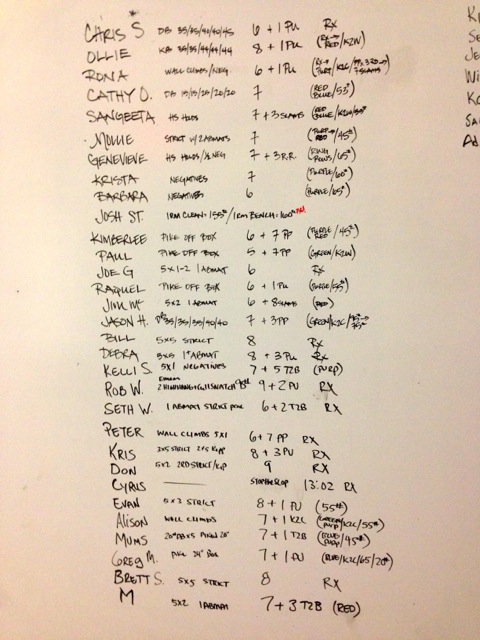 CHRIS S DB 35/35/40/40/45 6 + 1 PU RX
OLLIE KB 35/35/44/44/44 8 + 1 PU RED/K2W)
RONA WALL CLIMBS/NEG. 6 + 1 PU
CATHY O. DB 15/15/20/20/20 7 (RED BLUE/53#)
SANGEETA HS HOLDS 7 + 3 SLAMS (RED
MOLLIE STRICT W/ 2 ABMATS 7 (PURP RED /45#)
GENEVIEVE HS HOLDS/½ NEG 7 + 3 R.R. (RING ROWS/65#)
KRISTA NEGATIVES 7 (PURPLE/60#)
BARBARA NEGATIVES 6 (PURPLE/65#)
JOSH ST. 1RM CLEAN = 155# / 1RM BENCH = 160# PR!
KIMBERLEE PIKE OFF BOX 6 + 7 PP (PURPLE RED /45#)
PAUL PIKE OFF BOX 5 + 7 PP (GREEN/K2W)
JOE G 5 x 1-2 1 ABMAT 6 RX
RAQUEL PIKE OFF BOX 6 + 1 PU (PURPLE/55#)
JIM MC 5x2 1 ABMAT 6 + 8 SLAMS (RED)
JASON H. DB 35/35/35/50/40 7 + 3 PP (GREEN/K2C/
BILL 5x5 STRICT 8 RX
DEBRA 5x5 1 ABMAT 8 + 3 PU RX
KELLI S. 5x1 NEGATIVES 7 + 5 T2B (PURP)
ROB W. 9 + 2 PU RX
SETH W. 1 ABMAT STRICT 6 + 2 T2B RX
PETER WALL CLIMBS 5x1 6 + 7 PP RX
KRIS 3x5 STRICT 2x5 KIPP 8 + 3 PU RX
DON 5x2 2RD STRICT/KIP 9 RX
CYRUS —— 13:02 RX
EVAN 5x3 STRICT 8 + 1 PU (55#)
ALISON WALL CLIMBS 7 + 1 K2C
MUMS 7 + 1 T2B
GREG M. PIKE 24" BOX 7 + 1 PU (BLUE/K2C/65/20#)
BRETT S. 5x5 STRICT 8 RX
M 5x2 1 ABMAT 7 + 3 T2B (RED)